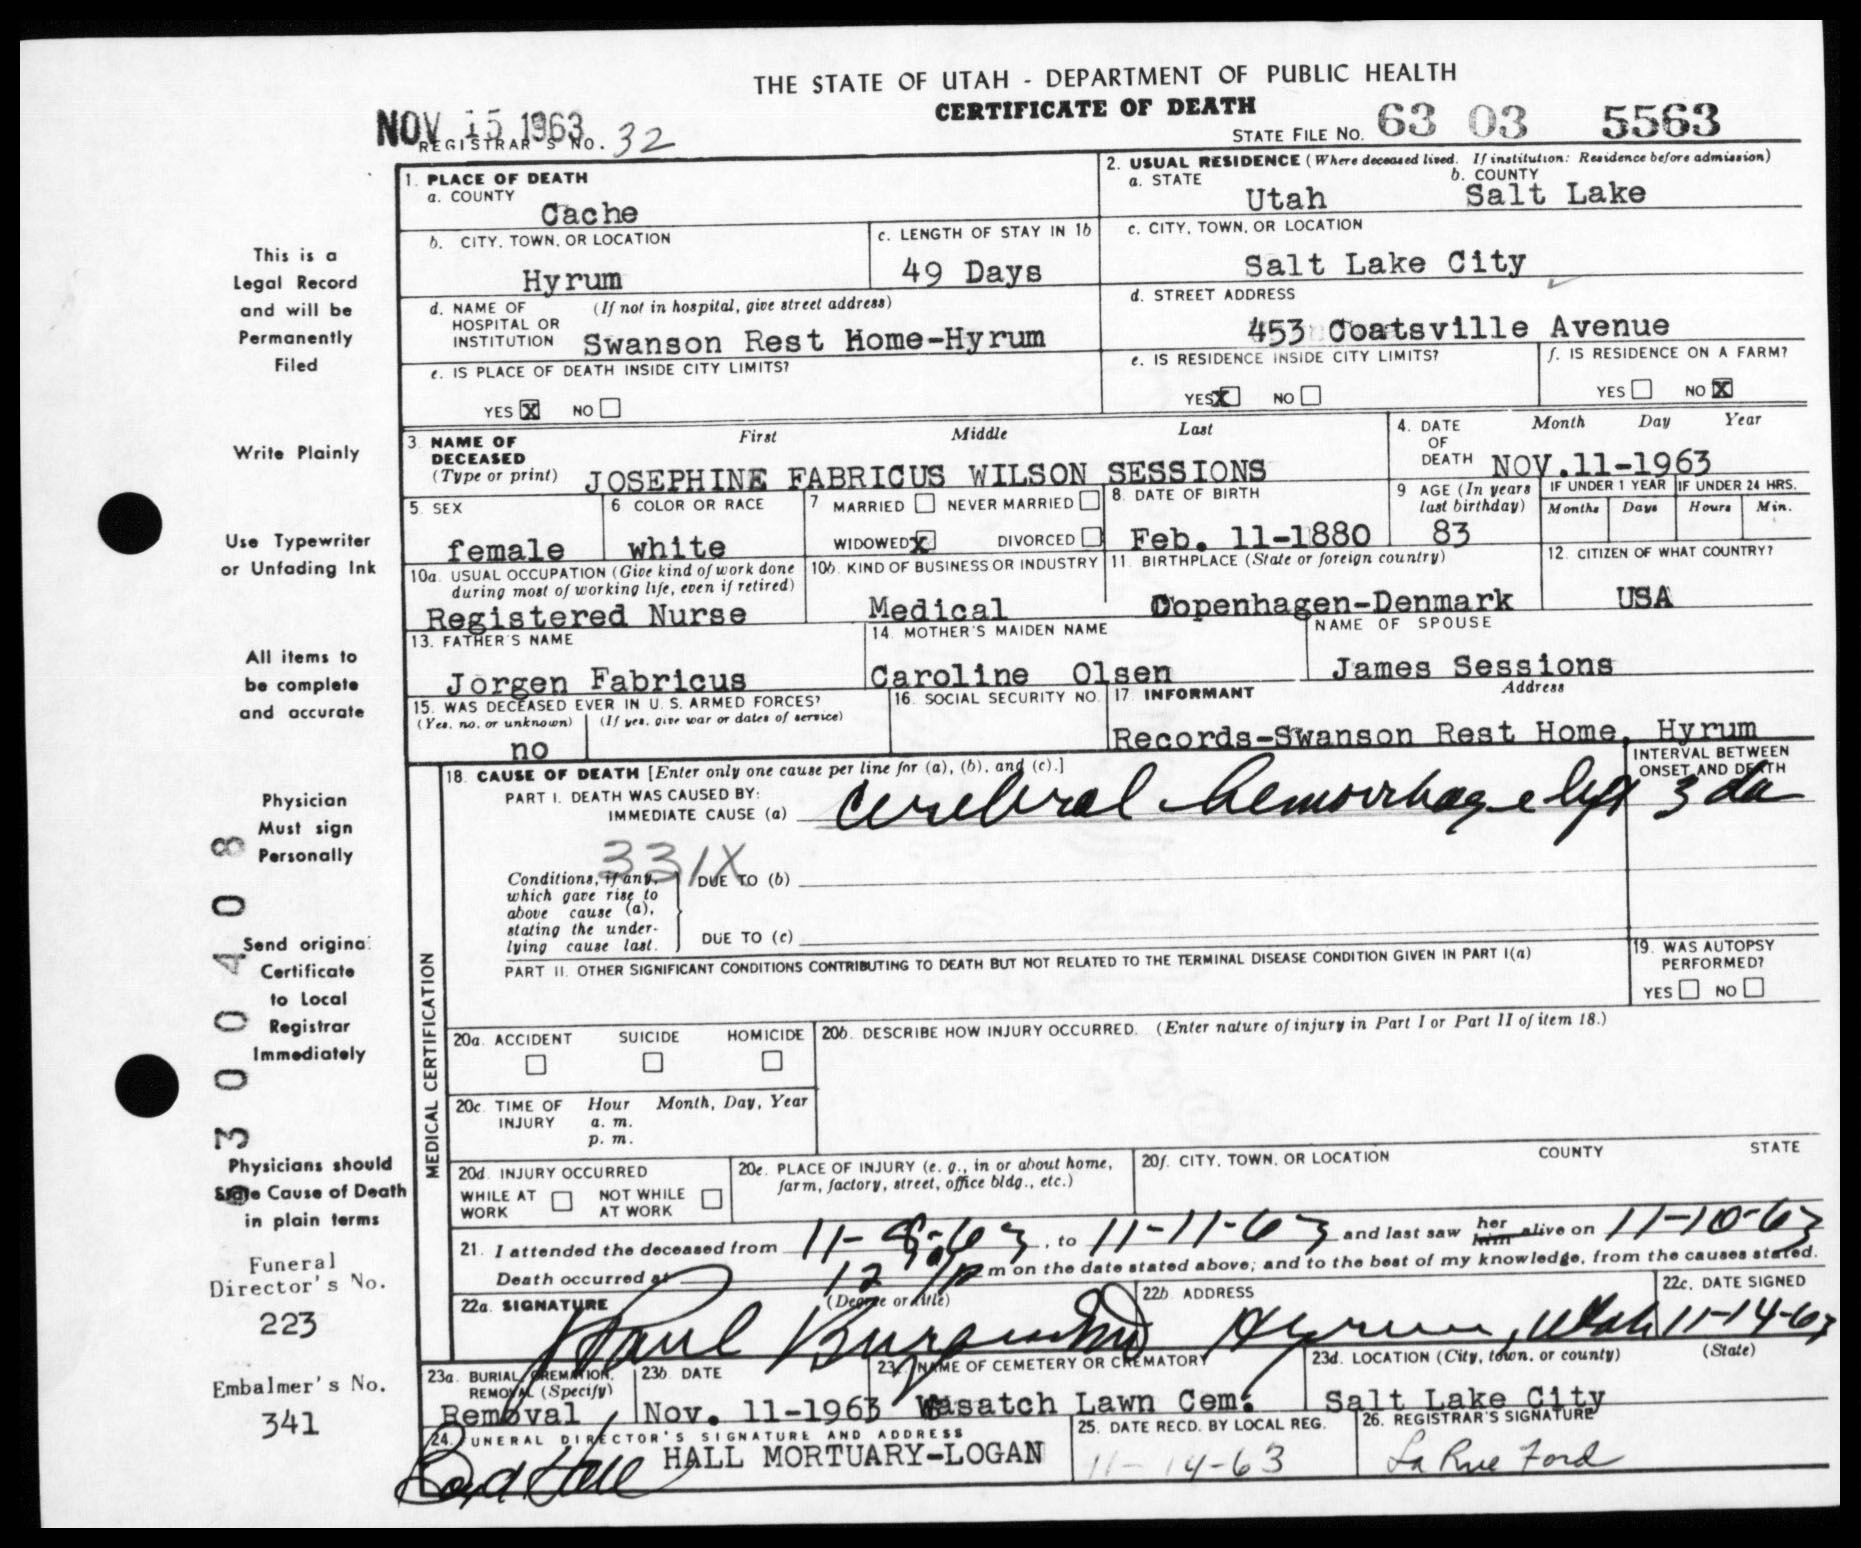 THE STATE OF UTAH - DEPARTMENT OF PUBLIC HEALTH
CERTIFICATE OF DEATH
NOV 15 1963
REGISTRAR'S NO. 32
STATE FILE NO. 63 03 5563
1. PLACE OF DEATH
a. COUNTY
Cache
2. USUAL RESIDENCE (Where deceased lived. If institution: Residence before admission)
a. STATE
Utah
b. COUNTY
Salt Lake
b. CITY, TOWN, OR LOCATION
Hyrum
c. LENGTH OF STAY IN 1b
49 Days
c. CITY, TOWN, OR LOCATION
Salt Lake City
d. NAME OF HOSPITAL OR INSTITUTION
(If not in hospital, give street address)
Swanson Rest Home-Hyrum
d. STREET ADDRESS
453 Coatsville Avenue
e. IS PLACE OF DEATH INSIDE CITY LIMITS?
YES X NO
e. IS RESIDENCE INSIDE CITY LIMITS?
YES X NO
f. IS RESIDENCE ON A FARM?
YES NO X
3. NAME OF DECEASED
(Type or print)
First Middle Last
JOSEPHINE FABRICUS WILSON SESSIONS
4. DATE OF DEATH
Month Day Year
NOV.11-1963
5. SEX
female
6 COLOR OR RACE
white
7 MARRIED NEVER MARRIED
WIDOWED X DIVORCED
8. DATE OF BIRTH
Feb. 11-1880
9 AGE (In years last birthday)
83
IF UNDER 1 YEAR
Months Days
IF UNDER 24 HRS.
Hours Min.
10a. USUAL OCCUPATION (Give kind of work done during most of working life, even if retired)
Registered Nurse
10b. KIND OF BUSINESS OR INDUSTRY
Medical
11. BIRTHPLACE (State or foreign country)
Copenhagen-Denmark
12. CITIZEN OF WHAT COUNTRY?
USA
13. FATHER'S NAME
Jorgen Fabricus
14. MOTHER'S MAIDEN NAME
Caroline Olsen
NAME OF SPOUSE
James Sessions
15. WAS DECEASED EVER IN U. S. ARMED FORCES?
(Yes, no, or unknown) (If yes, give war or dates of service)
no
16. SOCIAL SECURITY NO.
17. INFORMANT
Address
Records-Swanson Rest Home, Hyrum
18. CAUSE OF DEATH [Enter only one cause per line for (a), (b), and (c).]
INTERVAL BETWEEN ONSET AND DEATH
PART I. DEATH WAS CAUSED BY:
IMMEDIATE CAUSE (a)
Cerebral hemorrhage left 3 da
331X
Conditions, if any, which gave rise to above cause (a), stating the underlying cause last.
DUE TO (b)
DUE TO (c)
PART II. OTHER SIGNIFICANT CONDITIONS CONTRIBUTING TO DEATH BUT NOT RELATED TO THE TERMINAL DISEASE CONDITION GIVEN IN PART I(a)
19. WAS AUTOPSY PERFORMED?
YES NO
MEDICAL CERTIFICATION
20a. ACCIDENT SUICIDE HOMICIDE
20b. DESCRIBE HOW INJURY OCCURRED. (Enter nature of injury in Part I or Part II of item 18.)
20c. TIME OF INJURY
Hour Month, Day, Year
a. m.
p. m.
20d. INJURY OCCURRED
WHILE AT WORK NOT WHILE AT WORK
20e. PLACE OF INJURY (e. g., in or about home, farm, factory, street, office bldg., etc.)
20f. CITY, TOWN, OR LOCATION COUNTY STATE
21. I attended the deceased from 11-8-63, to 11-11-63 and last saw her him alive on 11-10-63
Death occurred at 12 10 p m on the date stated above; and to the best of my knowledge, from the causes stated.
22a. SIGNATURE
(Degree or title)
Paul Burgess MD
22b. ADDRESS
Hyrum, Utah
22c. DATE SIGNED
11-14-63
23a. BURIAL, CREMATION, REMOVAL (Specify)
Removal
23b. DATE
Nov. 11-1963
23c. NAME OF CEMETERY OR CREMATORY
Wasatch Lawn Cem.
23d. LOCATION (City, town, or county) (State)
Salt Lake City
24. FUNERAL DIRECTOR'S SIGNATURE AND ADDRESS
Boyd Hall HALL MORTUARY-LOGAN
25. DATE RECD. BY LOCAL REG.
11-14-63
26. REGISTRAR'S SIGNATURE
La Rue Ford
This is a
Legal Record
and will be
Permanently
Filed
Write Plainly
Use Typewriter
or Unfading Ink
All items to
be complete
and accurate
Physician
Must sign
Personally
Send original
Certificate
to Local
Registrar
Immediately
Physicians should
State Cause of Death
in plain terms
Funeral
Director's No.
223
Embalmer's No.
341